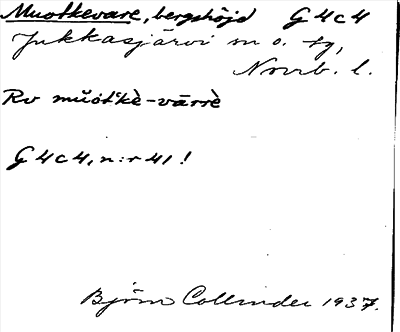 Muotkevare, bergshöjd G 4 c 4
Jukkasjärvi sn o. tg,
Norrb. l.
Rv muot'kè-vārrè
G 4 c 4, n:r 41!
Björn Collinder 1937.